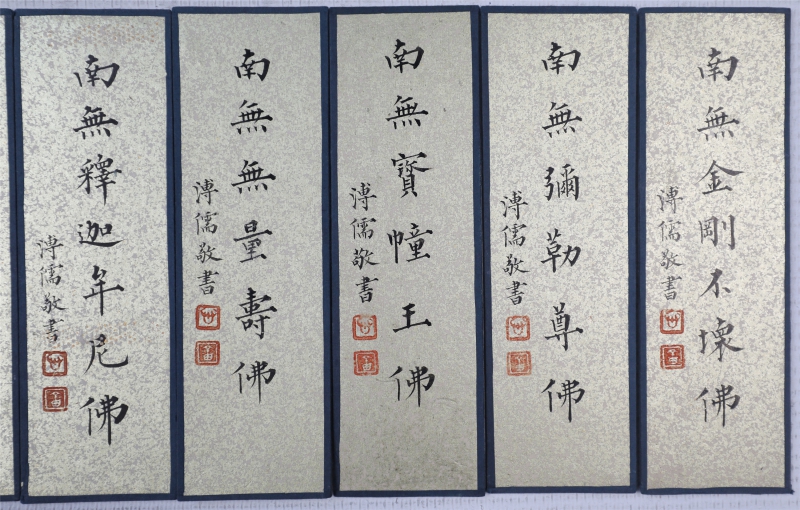 南無金剛不壞佛
溥儒敬書
南無彌勒尊佛
溥儒敬書
南無寶幢王佛
溥儒敬書
南無無量壽佛
溥儒敬書
南無釋迦牟尼佛
溥儒敬書